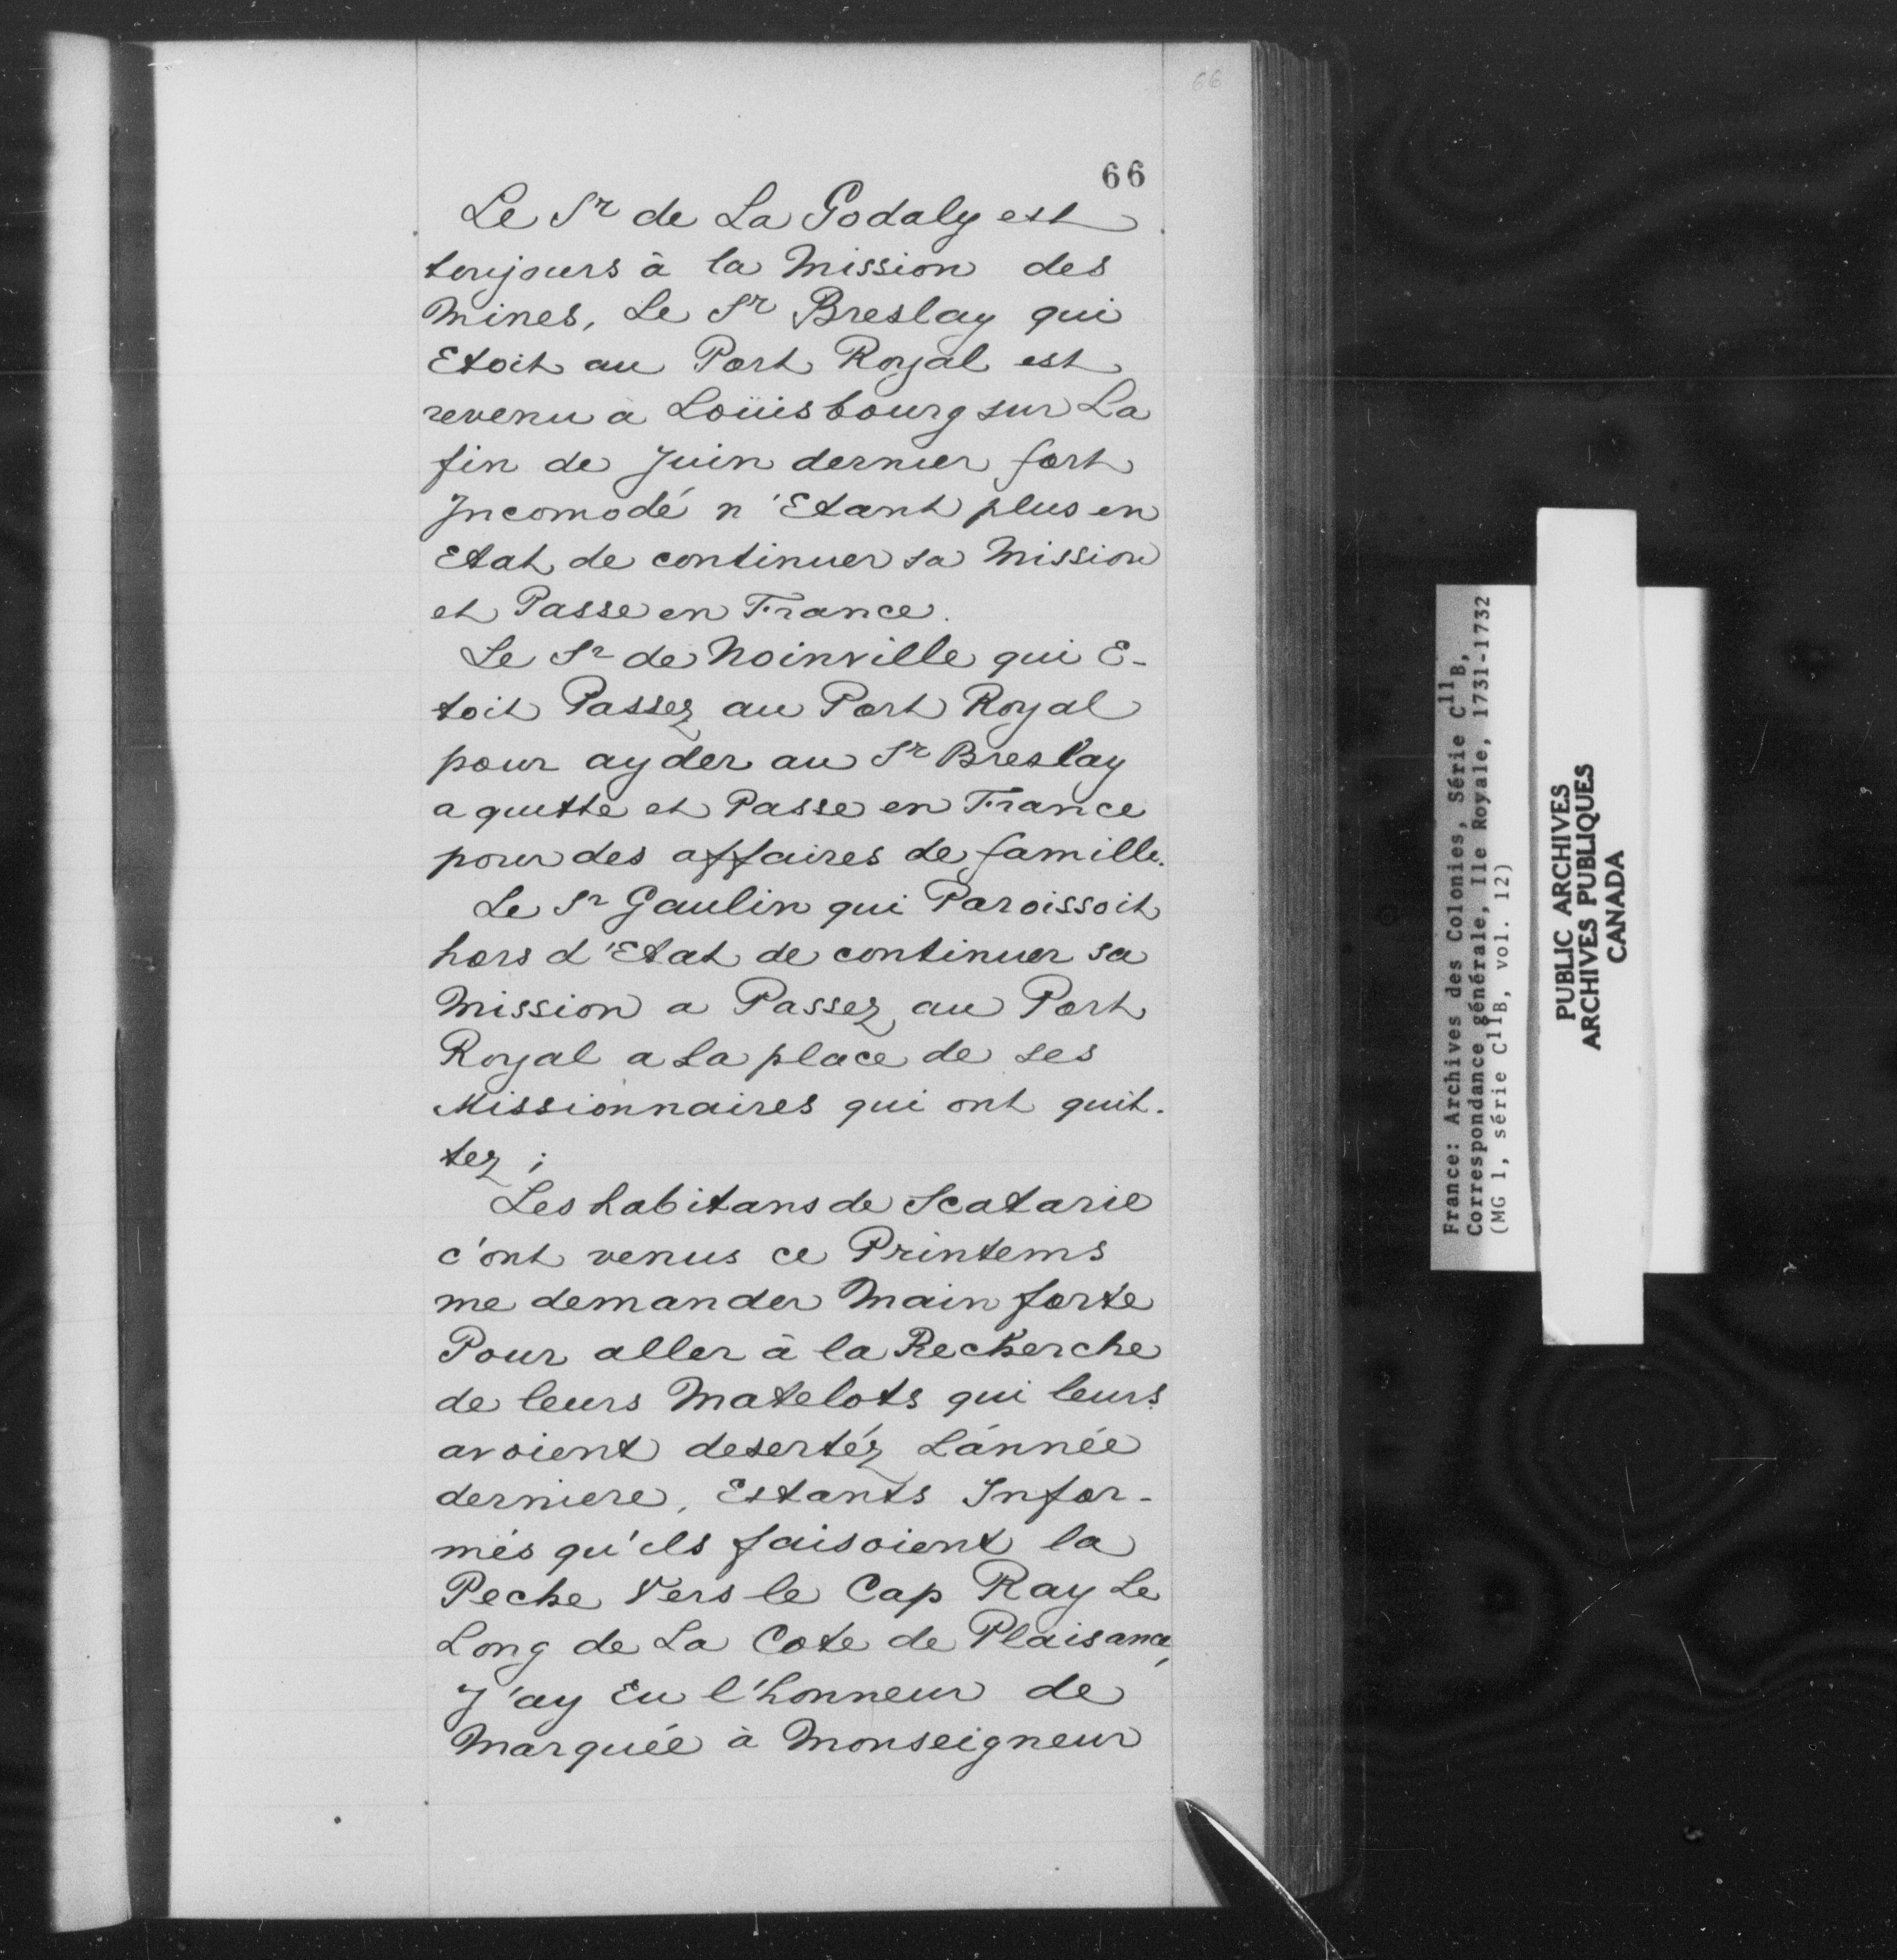 66
66
Le Sr de La Godaly est
toujours à la Mission des
Mines, Le Sr Breslay qui
Etoit au Port Royal est
revenu à Loüisbourg sur La
fin de Juin dernier fort
Jncomodé n'Etant plus en
Etat de continuer sa Mission
et Passe en France.
Le Sr de Noinville qui E-
toit Passez au Port Royal
pour ayder au Sr Breslay
a quitte et Passe en France
pour des affaires de famille.
Le Sr Gaulin qui Paroissoit
hors d'Etat de continuer sa
Mission a Passez au Port
Royal a La place de ses
Missionnaires qui ont quit-
tez ;
Les habitans de Scatarie
c'ont venus ce Printems
me demander Main forte
Pour aller à la Recherche
de leurs Matelots qui leurs
avoient desertéz L'année
derniere, Estants Infor-
més qu'ils faisoient la
Peche Vers le Cap Ray Le
Long de La Cote de Plaisance,
J'ay Eu l'honneur de
Marquée à Monseigneur
France: Archives des Colonies, Série C11B,
Correspondance générale, Ile Royale, 1731-1732
(MG 1, série C11B, vol. 12)
PUBLIC ARCHIVES
ARCHIVES PUBLIQUES
CANADA